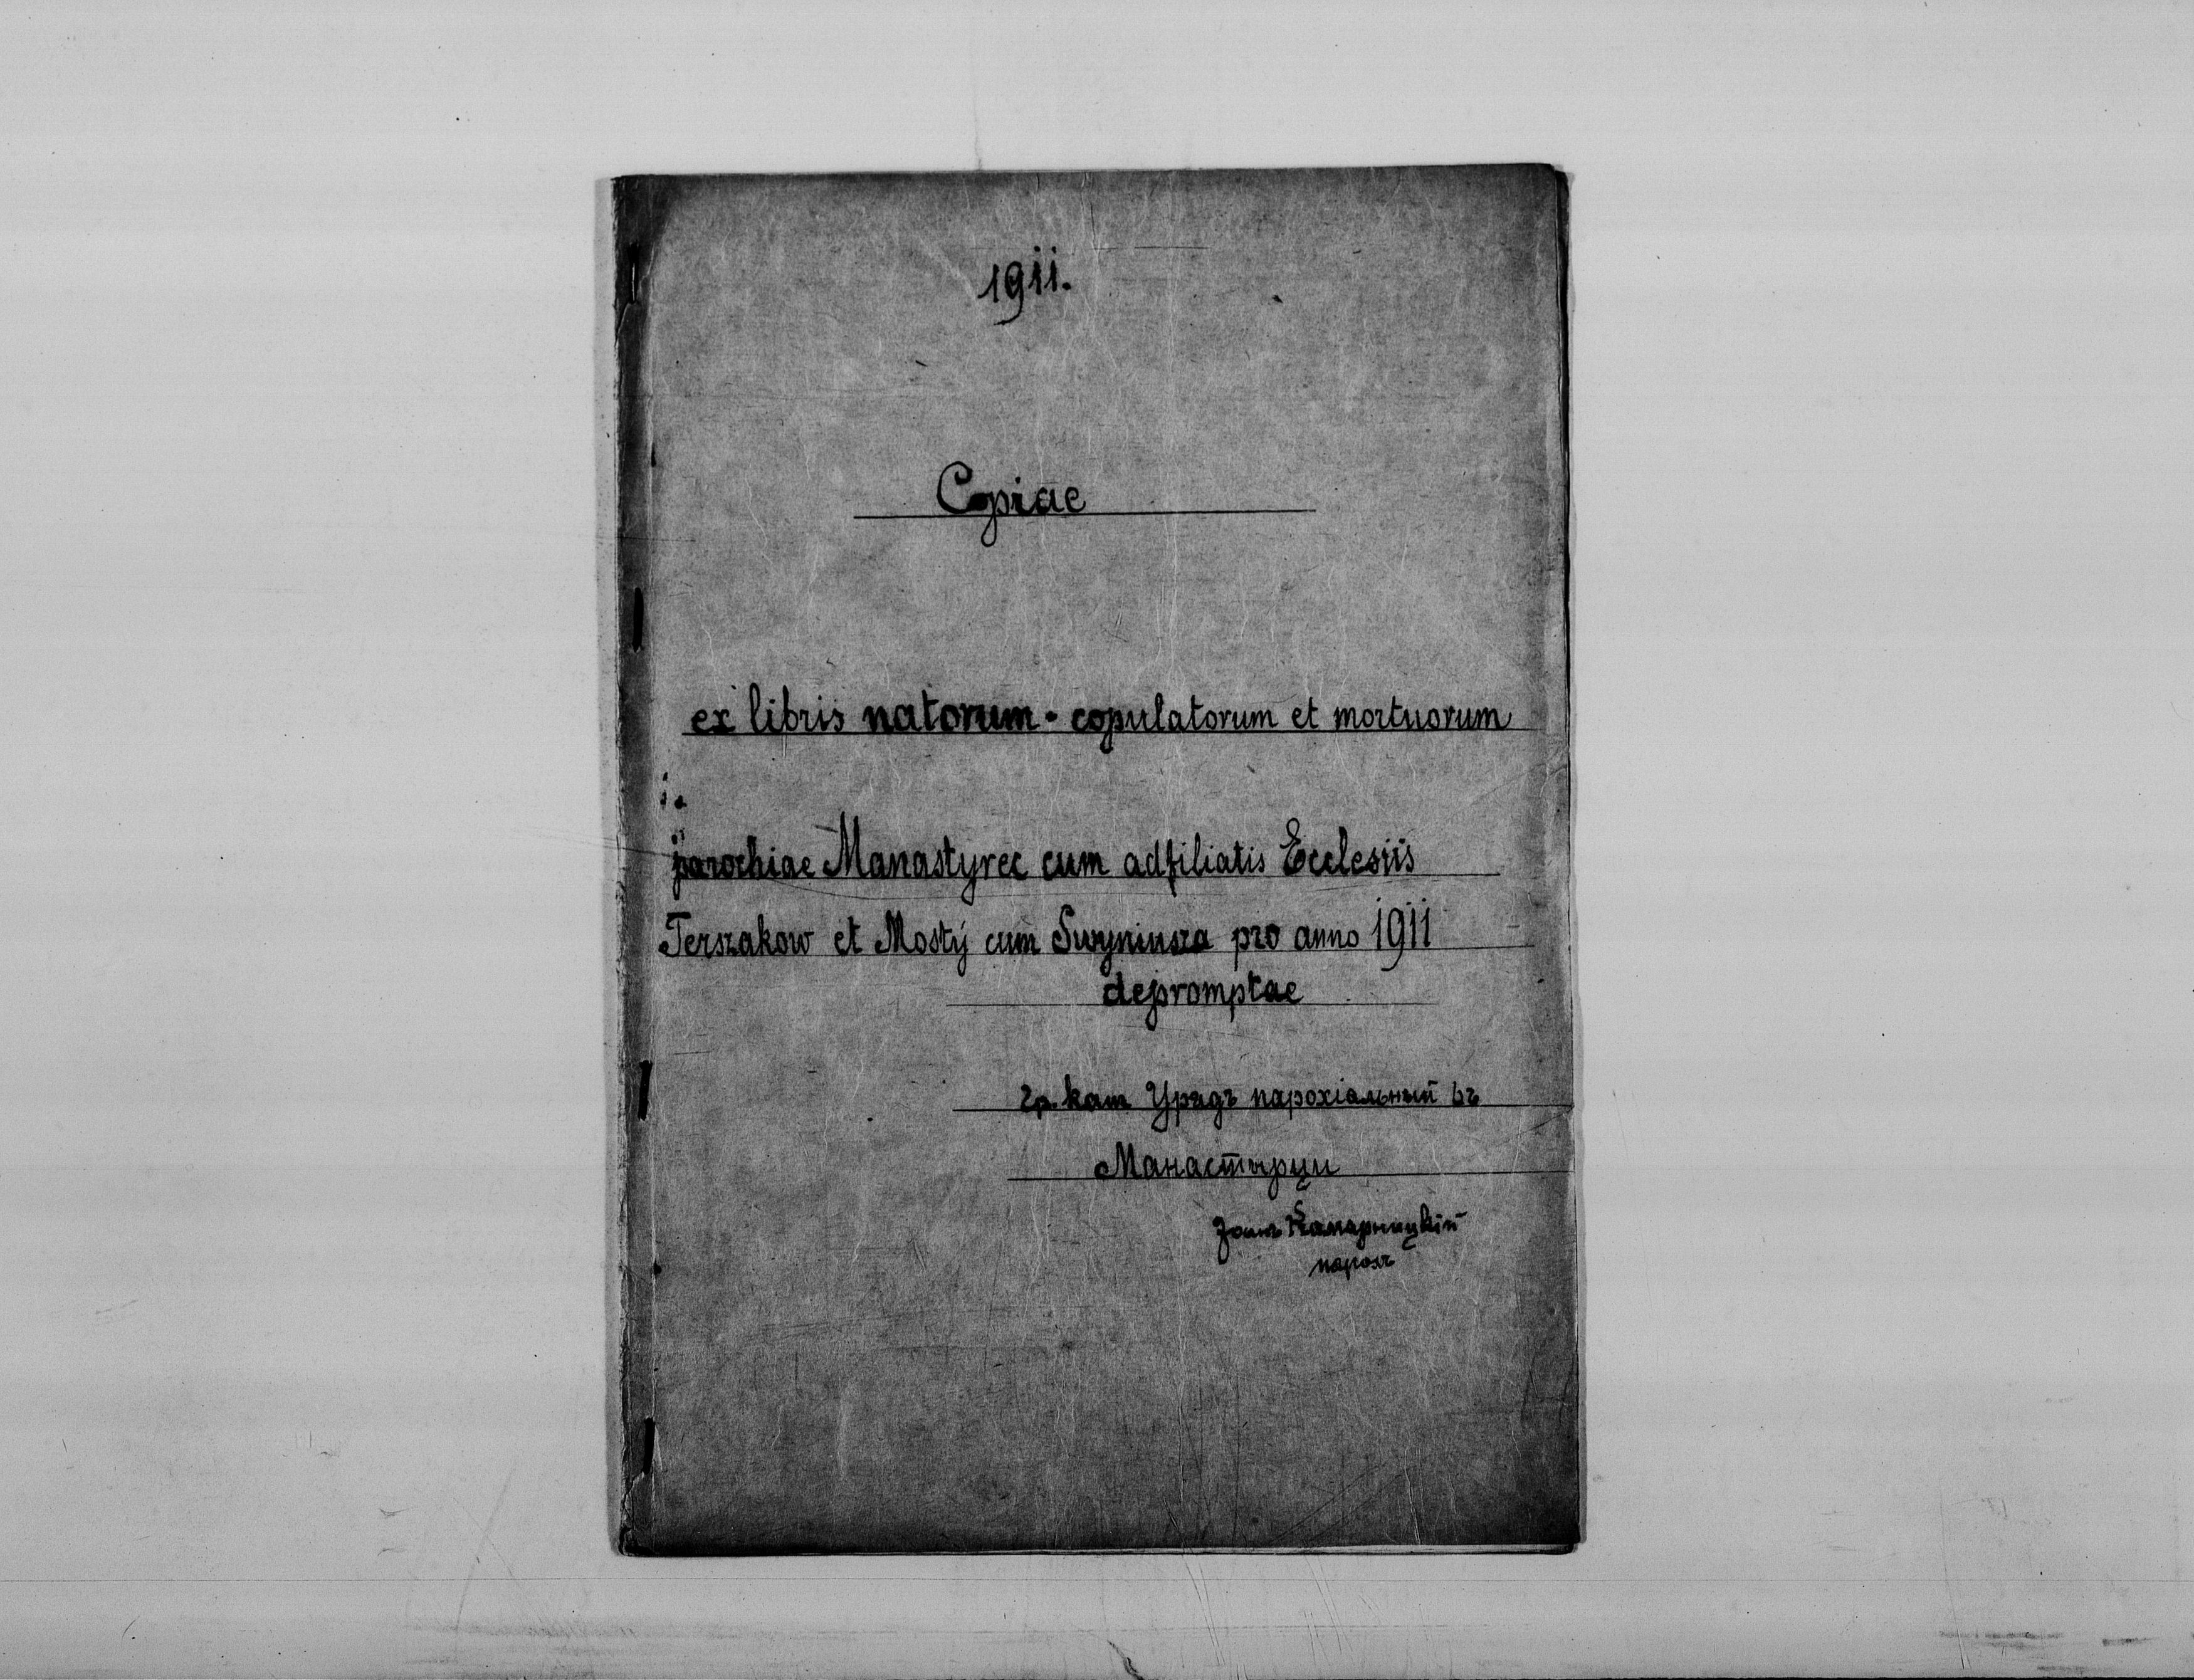 1911.
Copiae
ex libris natorum - copulatorum et mortuorum
parochiae Manastyrec cum adfiliatis Ecclesiis
Terszakow et Mosty cum Swyniusza pro anno 1911
depromptae
гр. кат Урядъ парохіальный въ
Манастырци
Іоанъ Камарницкій
парохъ